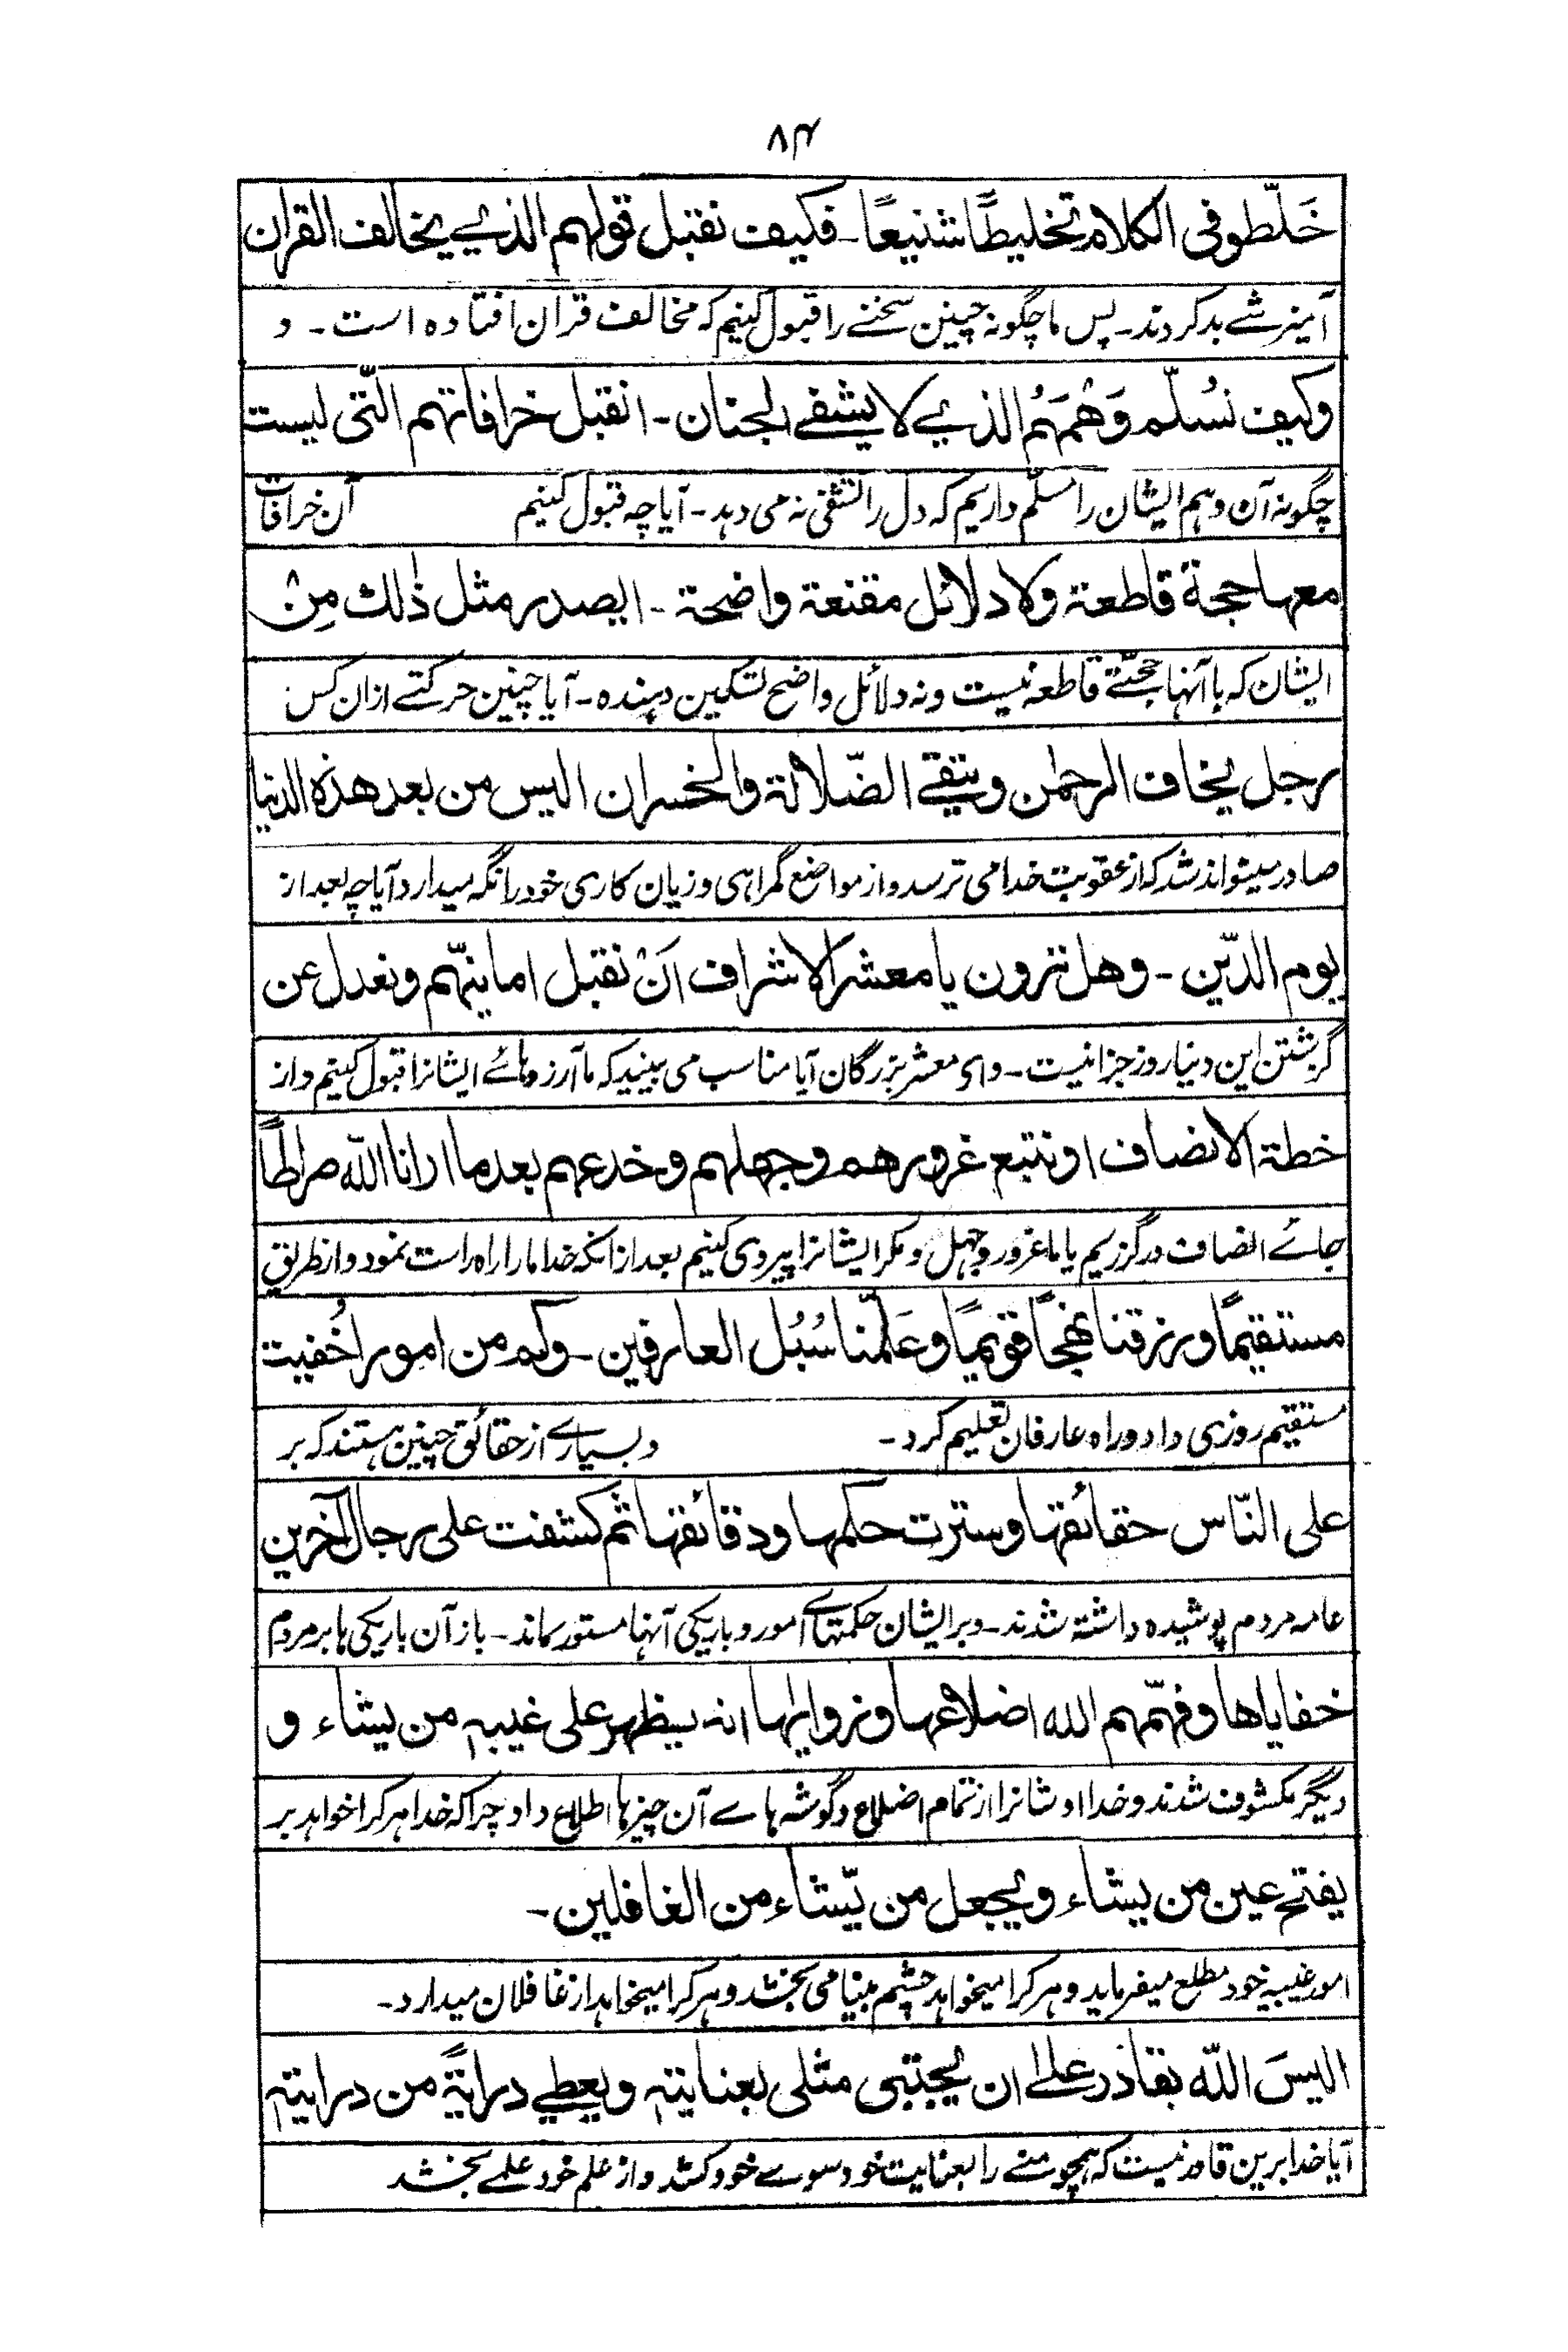 ۸۴
خَلّطو فی الکلام تخلیطًا شنیعًا۔ فکیف نقبل قولهم الذی یخالف القران
آمیزشے بد کردند۔ پس ما چگونہ چنین سخنے را قبول کنیم کہ مخالف قرآن افتادہ است۔ و
وکیف نُسلّم وَهْمَهُم الذی لا یشفی الجنان۔ انقبل خرافاتهم الّتی لیست
چگونہ آن وہم ایشان را مسلّم داریم کہ دل را تشفی نہ می دہد۔ آیا چہ قبول کنیم آن خرافات
معها حجة قاطعة ولا دلائل مقنعة واضحة۔ ایصدر مثل ذٰلک مِن
ایشان کہ با آنہا حجّتے قاطعہ نیست و نہ دلائل واضح تسکین دہندہ۔ آیا چنین حرکتے ازان کس
رجل یخاف الرحمٰن ویتقی الضّلالة والخسران الیس من بعد هذه الدنیا
صادر میتواند شد کہ از عقوبت خدا می ترسد و از مواضع گمراہی و زیان کاری خود را نگہ میدارد آیا چہ بعد از
یوم الدّین۔ وهل ترون یا معشر الاشراف اَنْ نقبل امانیّهم ونعدل عن
گزشتن این دنیا روز جزا نیست۔ و ای معشر بزرگان آیا مناسب می بینید کہ ما آرزوہائے ایشانرا قبول کنیم و از
خطة الانصاف او نتبع غرورهم وجهلهم وخدعهم بعد ما ارانا اللّٰه صراطًا
جائے انصاف درگزریم یا ما غرور و جہل و مکر ایشانرا پیروی کنیم بعد ازانکہ خدا ما را راہ راست نمود و از طریق
مستقیمًا ورزقنا نهجًا قویمًا وعَلّمنا سُبُل العارفین۔ وکم من امور اُخفیت
مستقیم روزی داد و راہ عارفان تعلیم کرد۔ و بسیارے از حقائق چنین ہستند کہ بر
علی النّاس حقائقها وسترت حکمها ودقائقها ثم کشفت علی رجال آخرین
عامہ مردم پوشیدہ داشتہ شدند۔ و بر ایشان حکمتہائے امور و باریکی آنہا مستور ماند۔ باز آن باریکی ہا بر مردم
خفایاها وفهّمهم الله اضلاعها وزوایاها انه یظهر علی غیبه من یشاء و
دیگر مکشوف شدند و خدا اوشانرا از تمام اضلاع و گوشہ ہائے آن چیزہا اطلاع داد چرا کہ خدا ہر کرا خواہد بر
یفتح عین من یشاء ویجعل من یّشاء من الغافلین۔
امور غیبیہ خود مطلع میفرماید و ہر کرا میخواہد چشم بینا می بخشد و ہر کرا میخواہد از غافلان میدارد۔
الیسَ اللّٰه بقادر علی ان یجتبی مثلی بعنایته ویعطی درایةً من درایته
آیا خدا برین قادر نیست کہ ہمچو منے را بعنایت خود سوئے خود کشد و از علم خود علمے بخشد